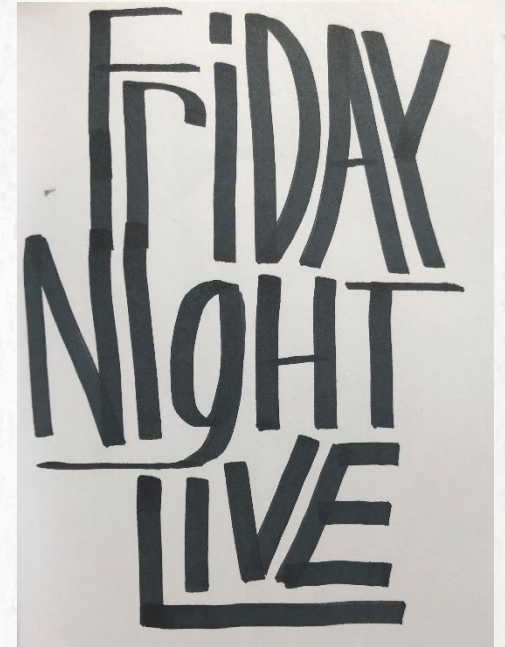 FriDAY
NIgHT
LIVE